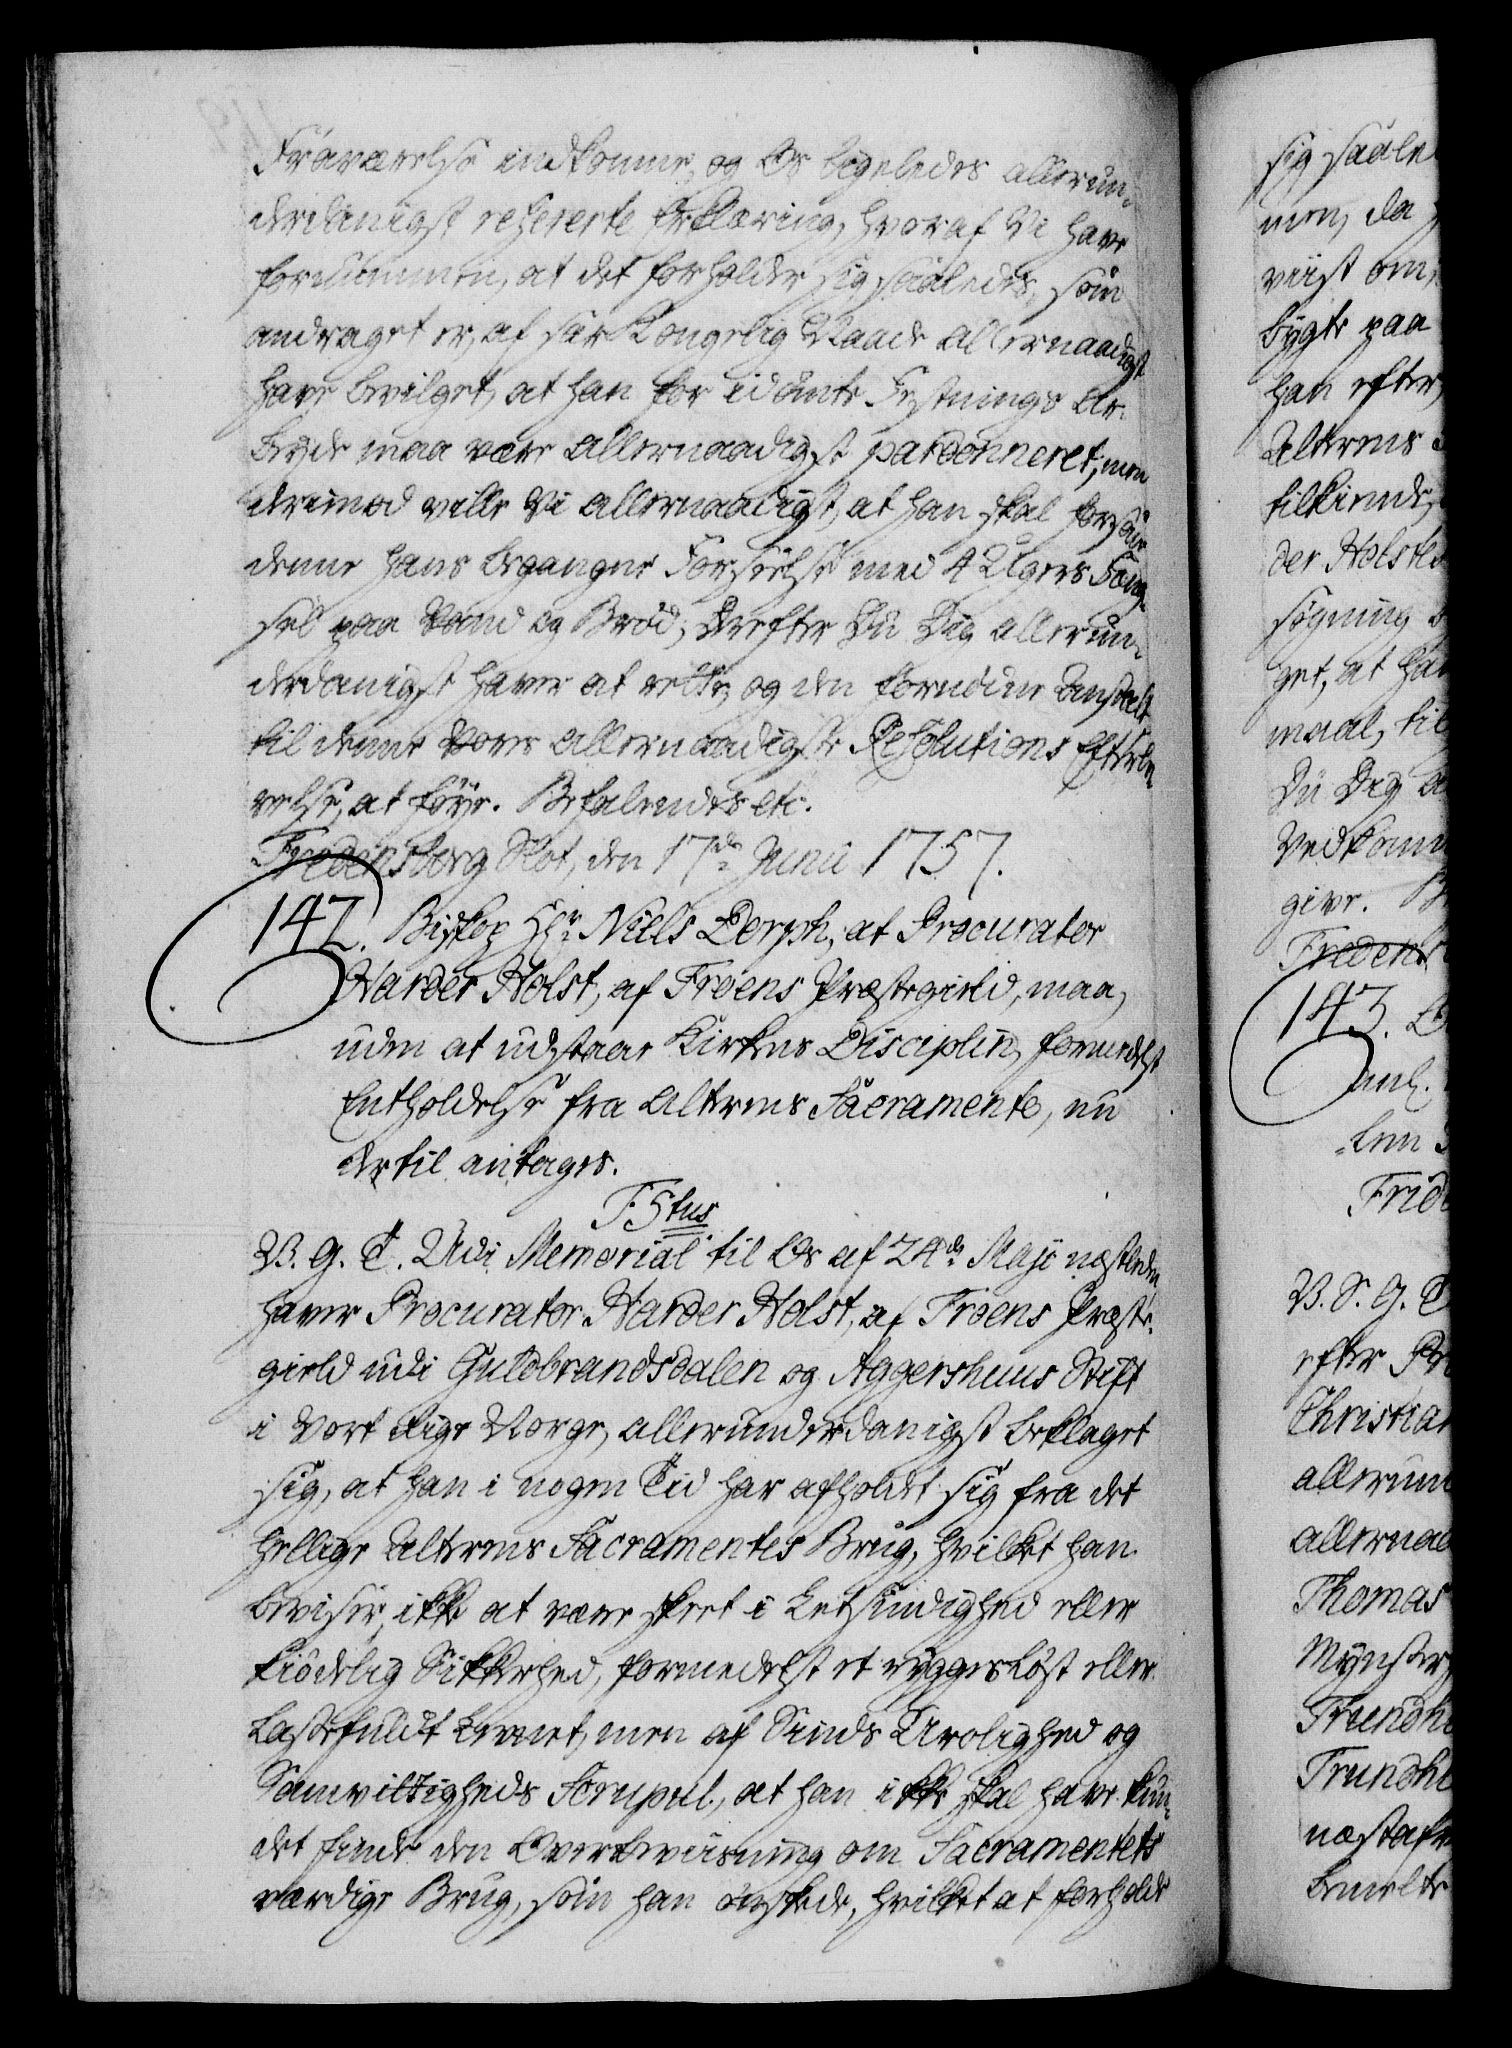 Fraværelse indkomne, og Os ligeledes allerun-
derdanigst refererte Erklæring, hvoraf Vi have
fornummen, at det forholder sig saaledes, som
andraget er, af sær Kongelig Naade allernaadigst
have bevilget, at han for idømte Festnings Ar-
beyde maa være allernaadigst pardonneret, men
derimod ville Vi allernaadigst, at han skal forsone
denne hans begangne Forseelse med 4 Ugers Fæng-
sel paa Vand og Brød; Derefter Du Dig allerun-
derdanigst haver at rette, og den fornødne Anstalt
til denne Vores allernaadigste Resolutions Efterle-
velse, at føye. Befalendes etc.
Fredensborg Slot, den 17de Junii 1757.
142. Biskop Hr. Niels Dorph, at Procurator
Harder Holst, af Froens Præstegield, maa,
uden at udstaae Kirkens Disciplin, formedelst
Entholdelse fra Alterens Sacramente, nu
dertil antages.
F5tus
V. G. T. Udi Memorial til Os af 24de Maji næstleden
haver Procurator Harder Holst, af Froens Præste-
gield udi Guldbrandsdalen og Aggershuus Stift
i Vort Rige Norge, allerunderdanigst beklaget
sig, at han i nogen Tid har afholdet sig fra det
hellige Alterens Sacramentes Brug, hvilket han
beviser, ikke at være skeet i Letsindighed eller
kiødelig Sikkerhed, formedelst et ryggesløst eller
lastefuldt Levnet, men af Sinds Urolighed og
Samvittigheds Scrupul, at han ikke skal have kun-
det finde den Overbeviisning om Sacramentets
værdige Brug, som han ønskede, hvilket at forholde
sig saale
men, da
viist om,
bygte paa
han efter
Alterens
tilkiende,
der Holsted
søgning
get, at han
maal, til
Du Dig a
Vedkomm
give. B
Fredens
143.
anl.
Frid
V. S. G. T
efter Pr
Christian
allerund
allernaa
Thomas
Mynster,
Trundhe
Trundhe
næstafv
bemelte